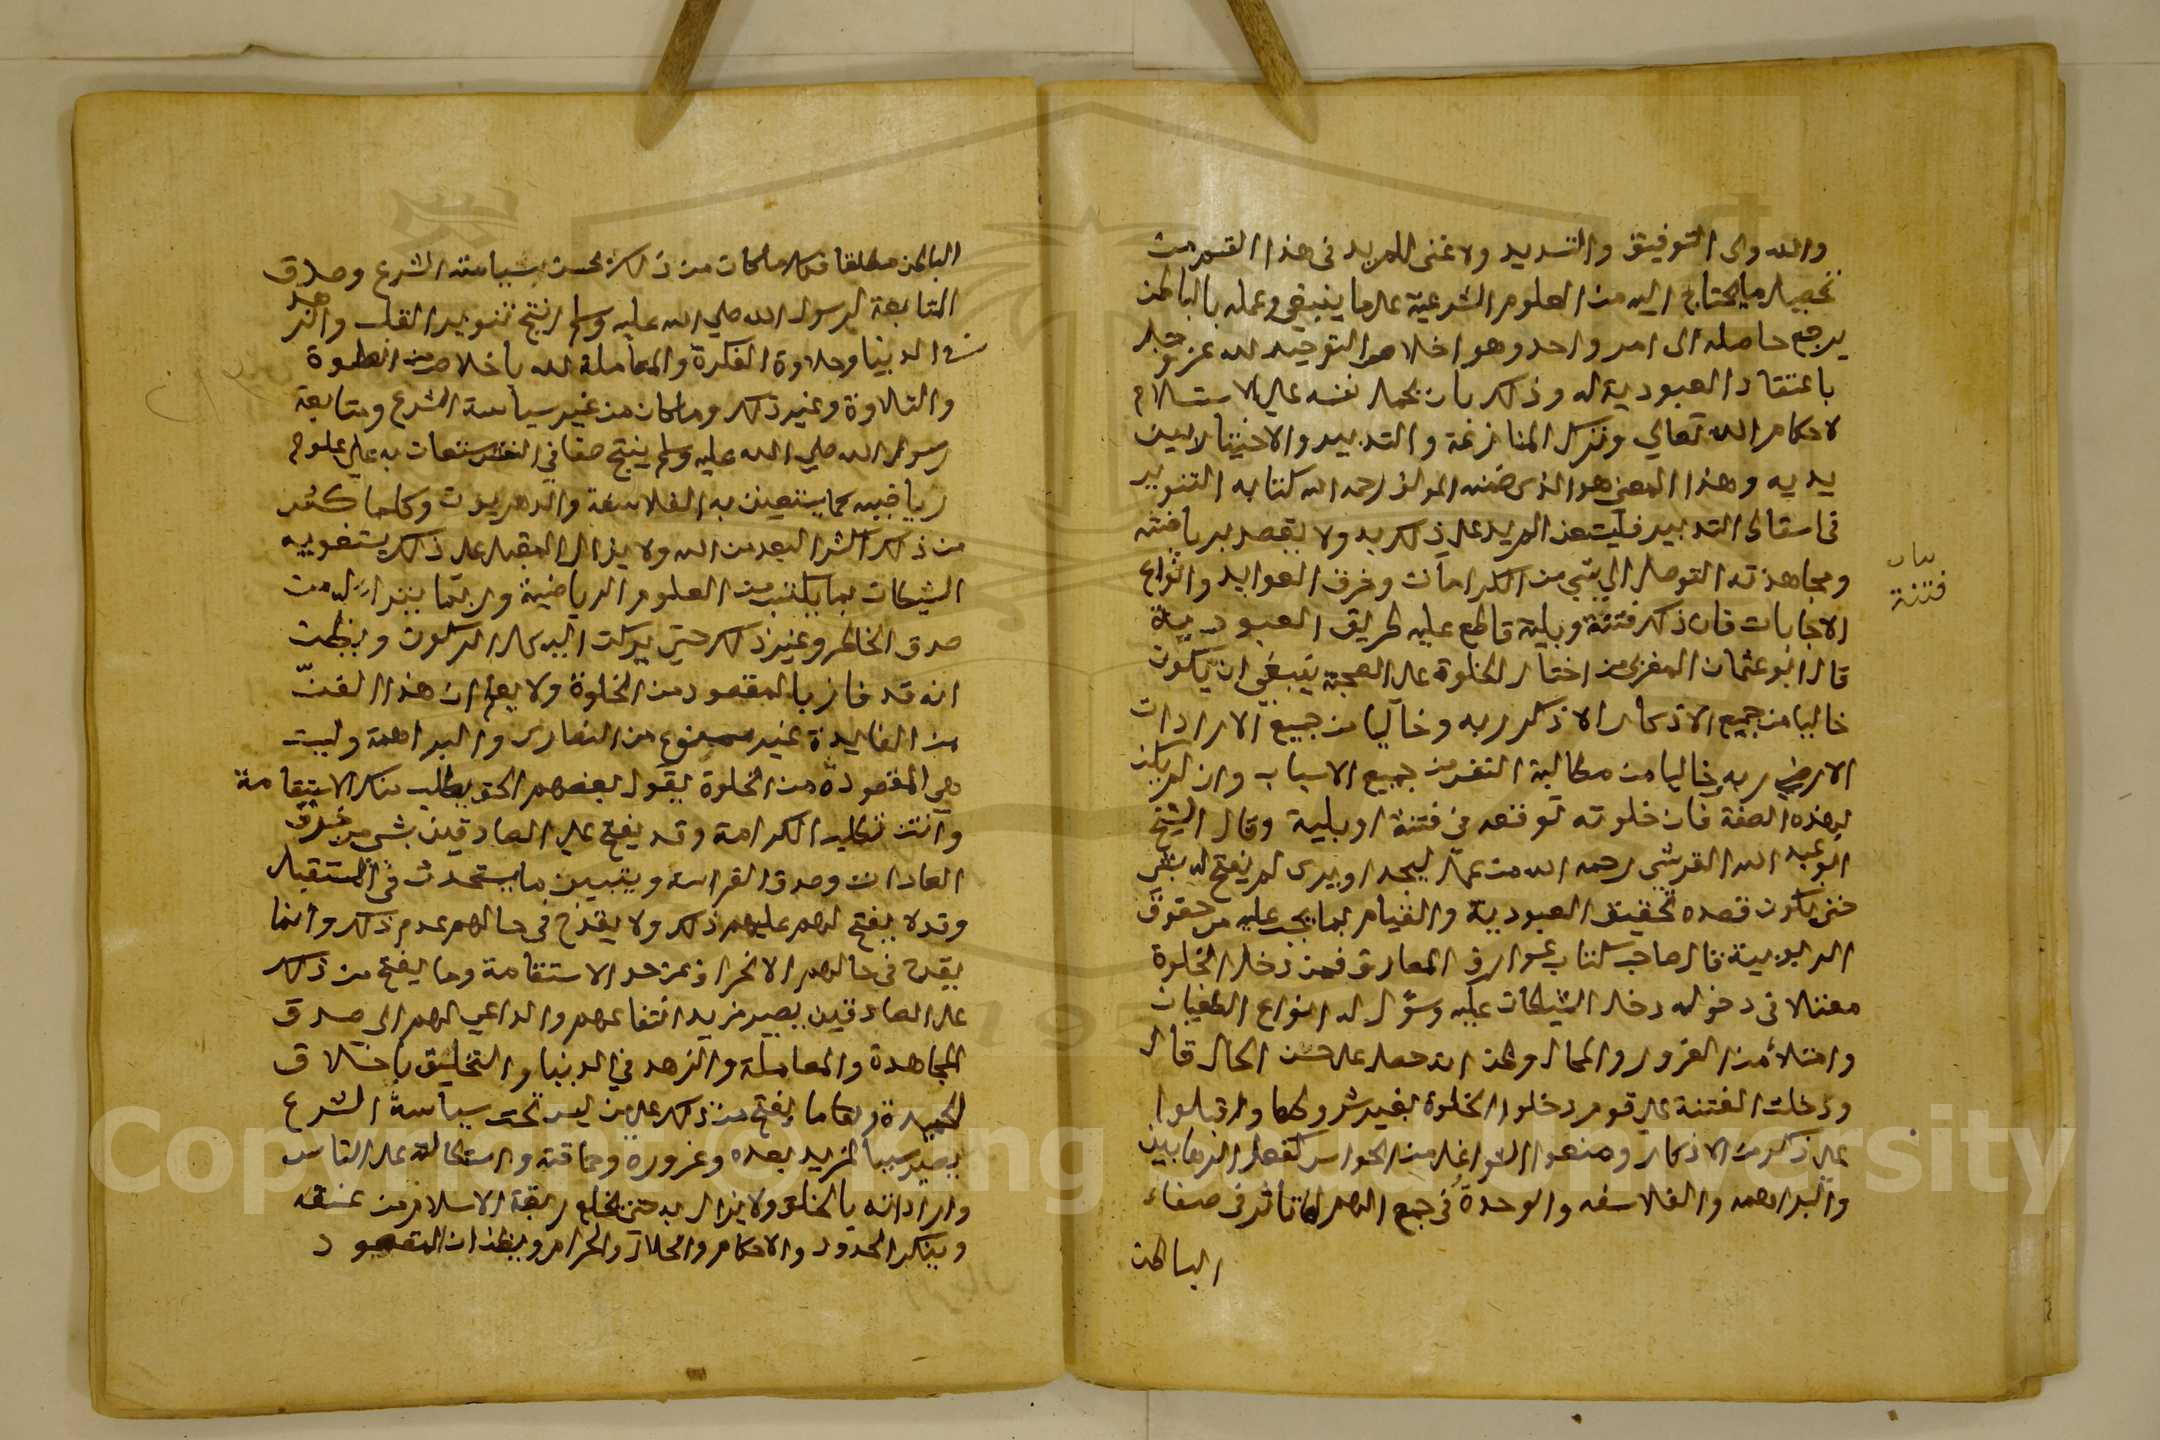 والله ولي التوفيق والتسديد ولا غنى للمريد في هذا القسم من
تحصيل ما يحتاج اليه من العلوم الشرعية على ما ينبغي وعمله بالباطن
يرجع حاصله الى امر واحد وهو اخلاص التوحيد لله عز وجل
باعتقاد العبودية له وذلك بان يحمل نفسه على الاستسلام
لاحكام الله تعالي وترك المنازعة والتدبير والاختيار بين
يديه وهذا المعنى هو الذي ضمنه المولف رحمه الله كتابه التنوير
في اسقاط التدبير فليتعد المريد على ذلك يد ولا يقصد برياضته
ومجاهدته التوصل الى شي من الكرامات وخرق العوايد وانواع
الاجابات فان ذلك فتنة وبلية قاطع عليه طريق العبودية
قال ابو عثمان المغربي من اختار الخلوة على الصحبة ينبغي ان يكون
خاليا من جميع الاذكار الا ذكر ربه وخاليا من جميع الارادات
الا رضى ربه وخاليا من مطالبة النفس من جميع الاسباب وان لم يكن
بهذه الصفة فان خلوته توقعه في فتنة او بلية وقال الشيخ
ابو عبد الله القرشي رحمه الله من عمل ليجد او يرى لم يفتح له بشى
حتى يكون قصده تحقيق العبودية والقيام بما يجب عليه من حقوق
الربوبية قال صاحب كتاب عوارف المعارف فمن دخل الخلوة
معتلا في دخوله دخل الشيطان عليه وسول له انواع الطغيان
وامتلأ من الغرور والمحال وظن انه حصل على حسن الحال قال
ودخلت الفتنة على قوم دخلوا الخلوة بغير شروطها واقبلوا
على ذكر من الاذكار ومنعوا الشواغل من الحواس كفعل الرهابين
والبراهمه والفلاسفه والوحدة في جمع الهم لها تاثر في صفاء
الباطن
بيان
فتنة
الباطن مطلقا فكل ما كان من ذلك بحسن سياسة الشرع وصدق
المتابعة لرسول الله صلي الله عليه وسلم انتج تنوير القلب والزهد
في الدنيا وحلاوة الفكرة والمعاملة لله باخلاص من الصلوة
والتلاوة وغير ذلك وما كان من غير سياسة الشرع ومتابعة
رسول الله صلي الله عليه وسلم ينتج صفا في النفس يستعان به علي علوم
رياضيه كما يستعين به الفلاسفة والدهريون وكلما كثر
من ذلك اكثر البعد من الله ولا يزال المقبل على ذلك يستغويه
الشيطان بما يكتسب من العلوم الرياضية وربما يتراى له من
صدق الخاطر وغير ذلك حتى يركن اليه كل الركون ويظن
انه قد فاز بالمقصود من الخلوة ولا يعلم ان هذا الفن
من الفايدة غير ممنوع من النصارى والبراهمة وليست
هي المقصودة من الخلوة يقول بعضهم الحق يطلب منك الاستقامة
وانت تطلب الكرامة وقد يفتح على الصادقين بشي من خرق
العادات وصدق الفراسة ويتبين ما يستحدث في المستقبل
وقد لا يفتح لهم عليهم ذلك ولا يقدح في حالهم عدم ذلك وانما
يقدح في حالهم الانحراف عن حد الاستقامة وما يفتح من ذلك
على الصادقين يصير مزيد انتفاعهم والداعي لهم الى صدق
المجاهدة والمعاملة والزهد في الدنيا والتخليق باخلاق
الحميدة وما يفتح من ذلك على من ليس تحت سياسة الشرع
يصير سببا لمزيد بعده وغروره وحماقته واستطالة على الناس
وازدرائه بالخلق ولا يزال به حتى يخلع ربقة الاسلام من عنقه
وينكر الحدود والاحكام والحلال والحرام ويظن ان المقصود